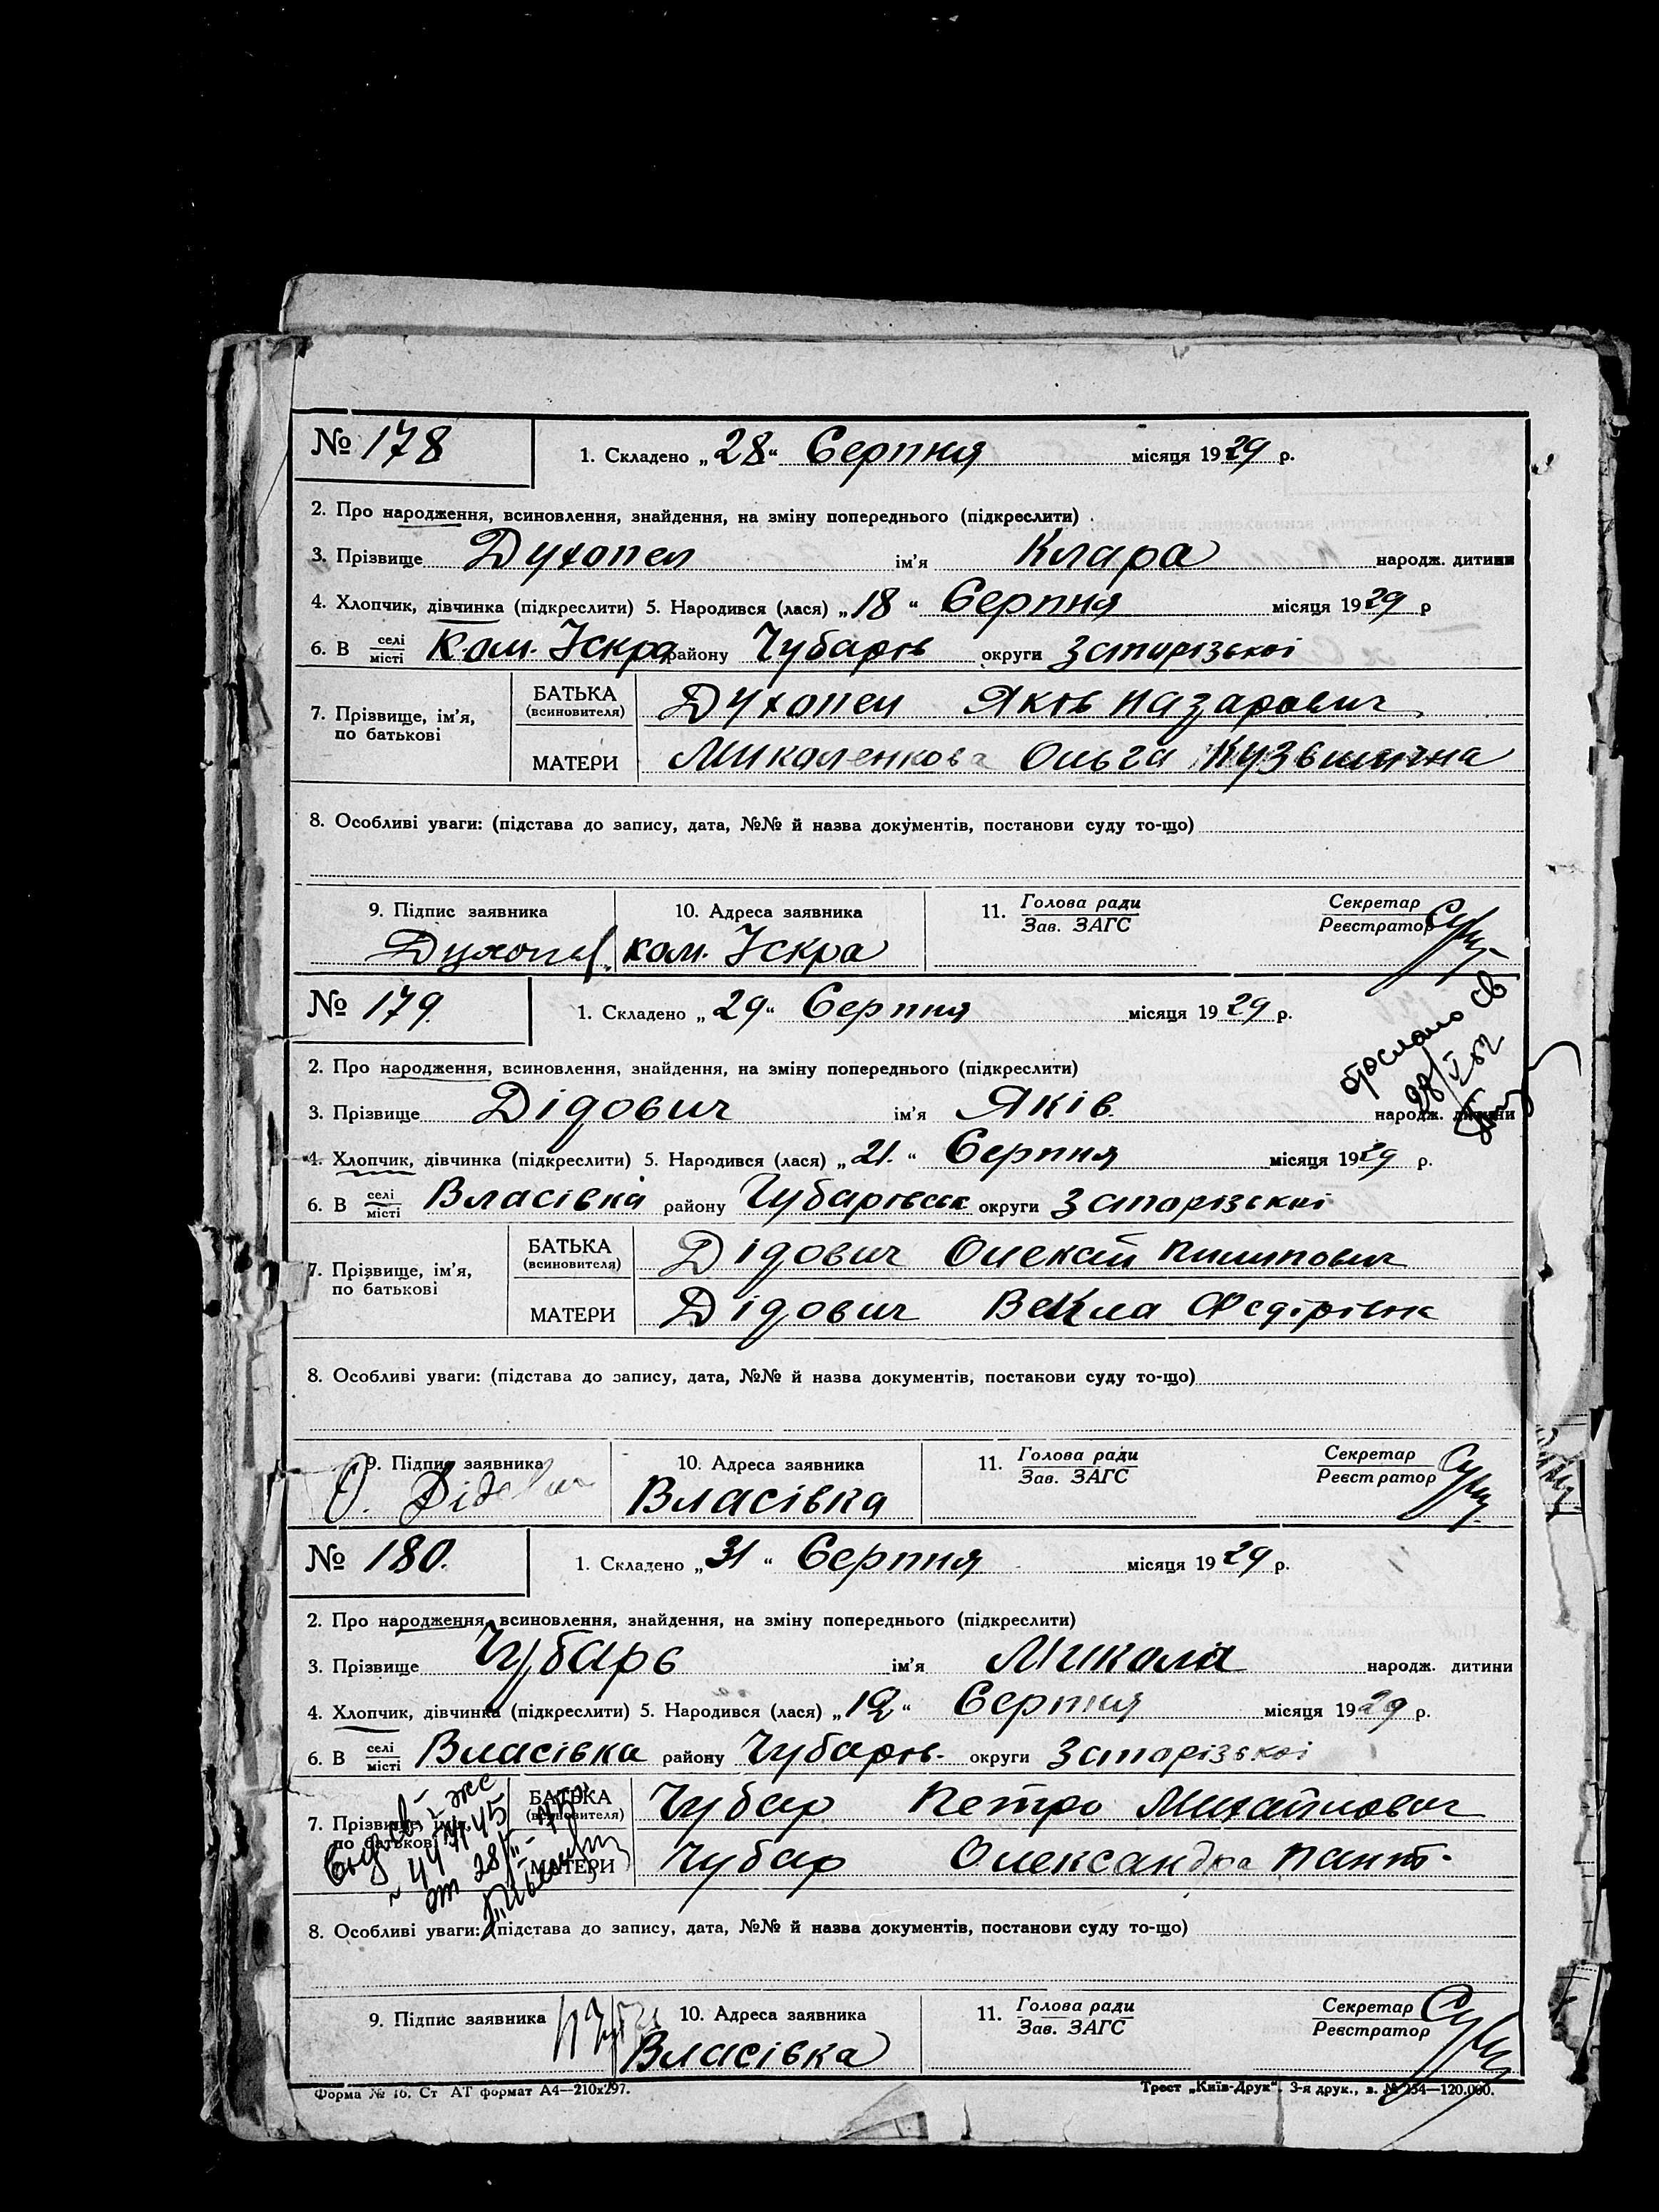 № 178
1. Складено „ 28 “ Серпня місяця 1929 р.
2. Про народження, всиновлення, знайдення, на зміну попереднього (підкреслити)
3. Прізвище Духопел ім’я Клара народж. дитини
4. Хлопчик, дівчинка (підкреслити) 5. Народився (лася) „ 18 “ Серпня місяця 1929 р
6. В селі місті Ком. Іскра району Чубарів округи Запорізькоі
7. Прізвище, ім’я, по батькові
БАТЬКА (всиновителя) Духопел Яків Назарович
МАТЕРИ Миколенкова Ольга Кузьминична
8. Особливі уваги: (підстава до запису, дата, №№ й назва документів, постанови суду то-що)
9. Підпис заявника 10. Адреса заявника 11. Голова ради Зав. ЗАГС Секретар Реєстратор
Духопел ком. Іскра
№ 179
1. Складено „ 29 “ Серпня місяця 1929 р.
2. Про народження, всиновлення, знайдення, на зміну попереднього (підкреслити)
3. Прізвище Дідович ім’я Яків народж. дитини
4. Хлопчик, дівчинка (підкреслити) 5. Народився (лася) „ 21 “ Серпня місяця 1929 р.
6. В селі місті Власівка району Чубарівськ округи Запорізькоі
7. Прізвище, ім’я, по батькові
БАТЬКА (всиновителя) Дідович Олексій Пилипович
МАТЕРИ Дідович Векла Федірівна
8. Особливі уваги: (підстава до запису, дата, №№ й назва документів, постанови суду то-що)
9. Підпис заявника 10. Адреса заявника 11. Голова ради Зав. ЗАГС Секретар Реєстратор
О. Власівка
№ 180.
1. Складено „ 31 “ Серпня місяця 1929 р.
2. Про народження, всиновлення, знайдення, на зміну попереднього (підкреслити)
3. Прізвище Чубарь ім’я Микола народж. дитини
4. Хлопчик, дівчинка (підкреслити) 5. Народився (лася) „ 12 “ Серпня місяця 1929 р.
6. В селі місті Власівка району Чубарів- округи Запорізькоі
7. Прізвище, ім’я, по батькові
БАТЬКА (всиновителя) Чубар Петро Михайлович
МАТЕРИ Чубар Олександра Пант-
8. Особливі уваги: (підстава до запису, дата, №№ й назва документів, постанови суду то-що)
9. Підпис заявника 10. Адреса заявника 11. Голова ради Зав. ЗАГС Секретар Реєстратор
Власівка
Форма № 16. Ст АТ формат А4—210х297. Трест „Київ-Друк“. 3-я друк., з. № 254—120.000.